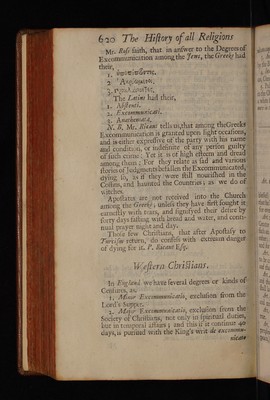 620 The History of all Religions
Mr. Ross saith, that in answer to the Degrees of
Excommunication among the Jews, the Greeks had
their,
1.
2.
3.
The Latins had their,
1. Abstenti.
2. Excommunicati.
3. Anathemata.
N. B. Mr. Ricaut tells us, that among the Greeks
Excommunication is granted upon slight occasions,
and is either expressive of the party with his name
and condition, or indefinite of any person guilty
of such crime: Yet it is of high esteem and dread
among them: For they relate as sad and various
stories of Judgments befallen the Excommunicated,
dying so, as if they were still nourished in the
Coffins, and haunted the Countries; as we do of
witches.
Apostates are not received into the Church
among the Greeks, unless they have first sought it
earnestly with tears, and signified their desire by
forty days fasting with bread and water, and conti-
nual prayer night and day.
Those few Christians, that after Apostasy to
Turcism return, do confess with extream danger
of dying for it. P. Ricaut Esq;
Western Christians.
In England we have several degrees or kinds of
Censures, as
1. Minor Excommunicatio, exclusion from the
Lord's Supper.
2. Major Excommunicatio, exclusion from the
Society of Christians, not only in spiritual duties,
but in temporal affairs; and this if it continue 40
days, is punisht with the King's writ de excommu-
nicato